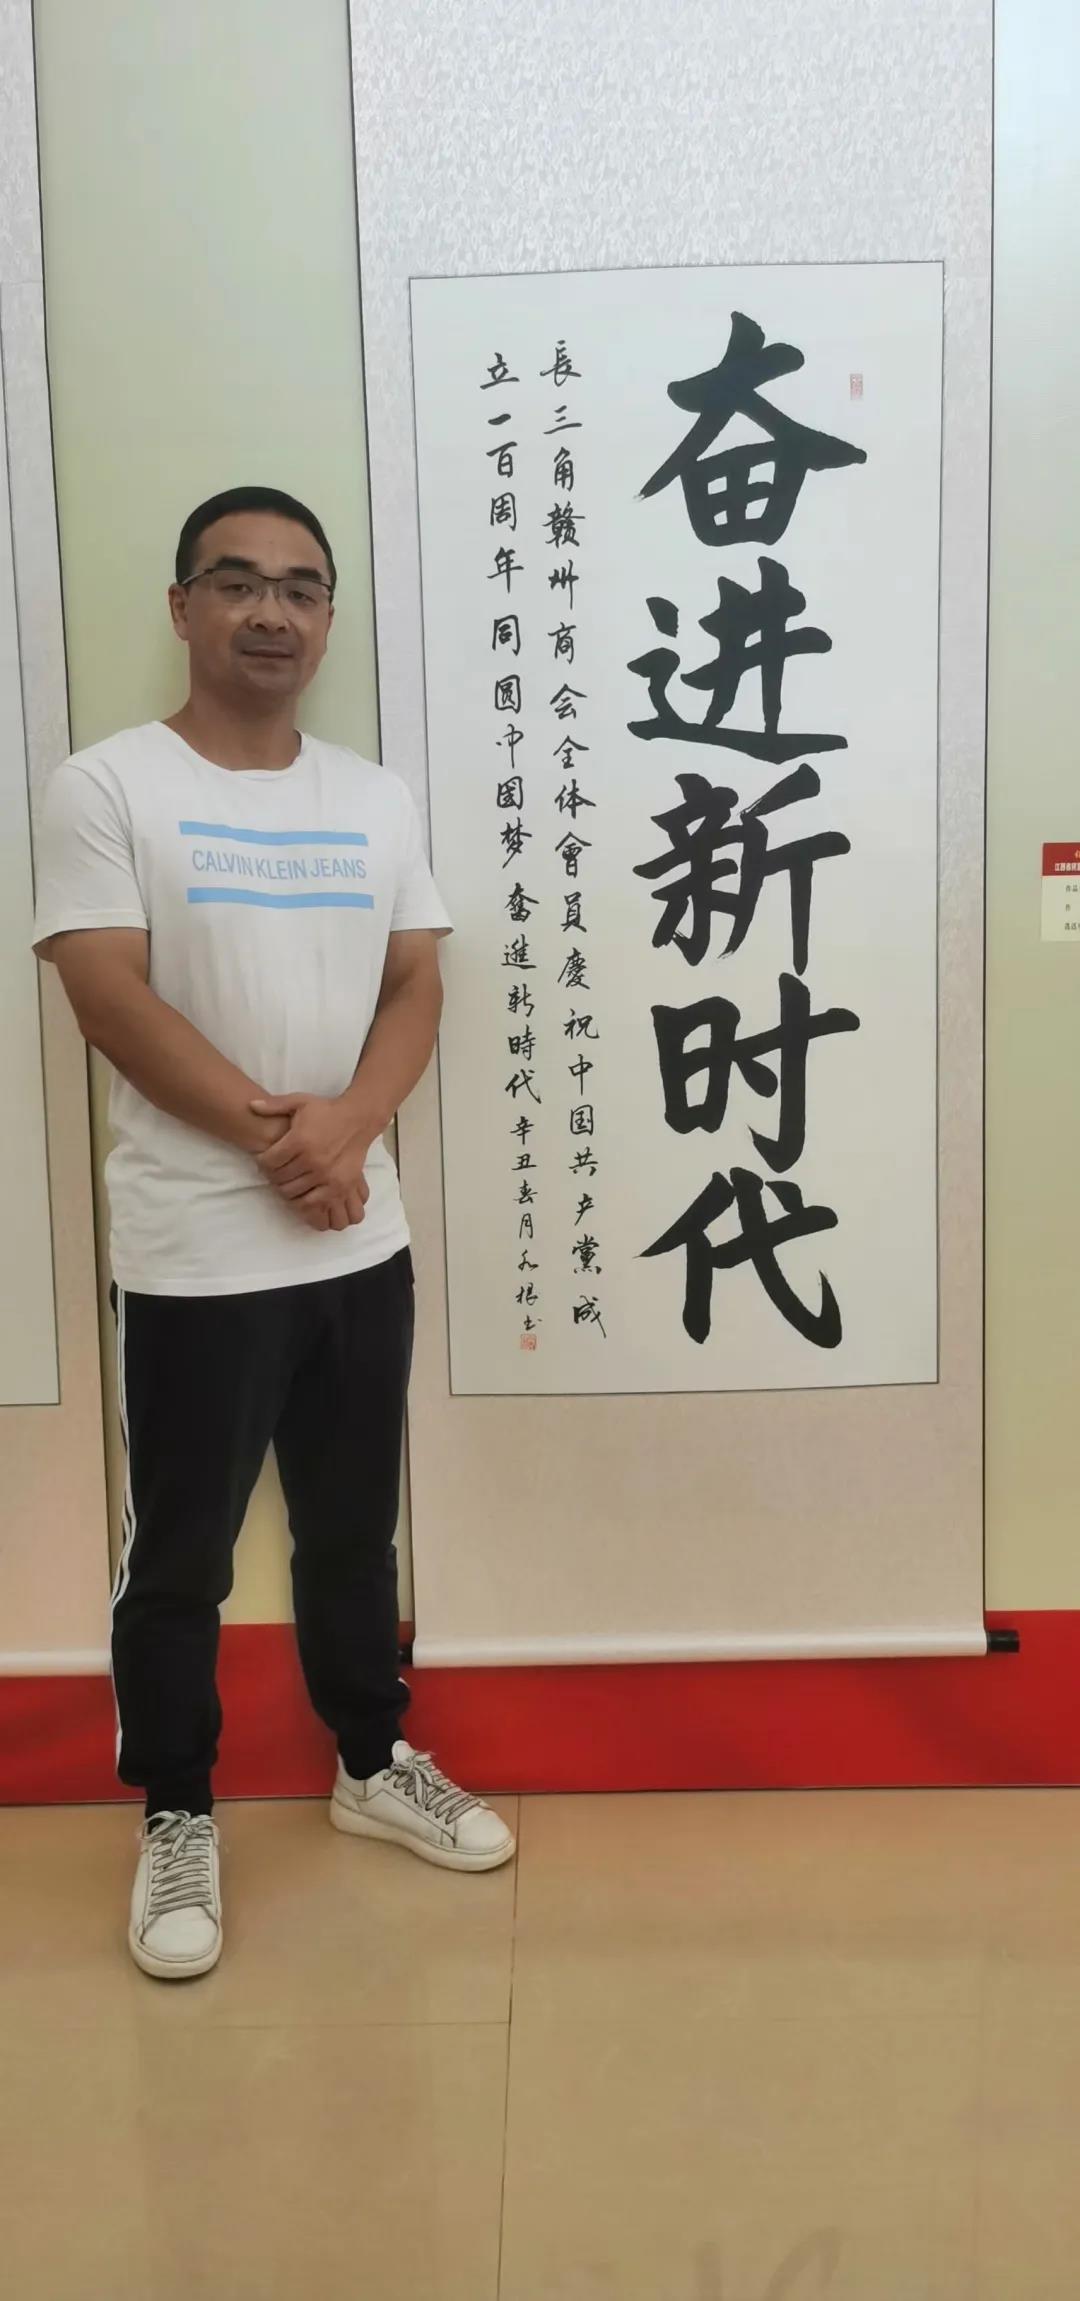 奋进新时代
長三角赣州商会全体會員慶祝中国共产黨成
立一百周年同圆中国梦奮進新時代辛丑春月永根书
CALVIN KLEIN JEANS